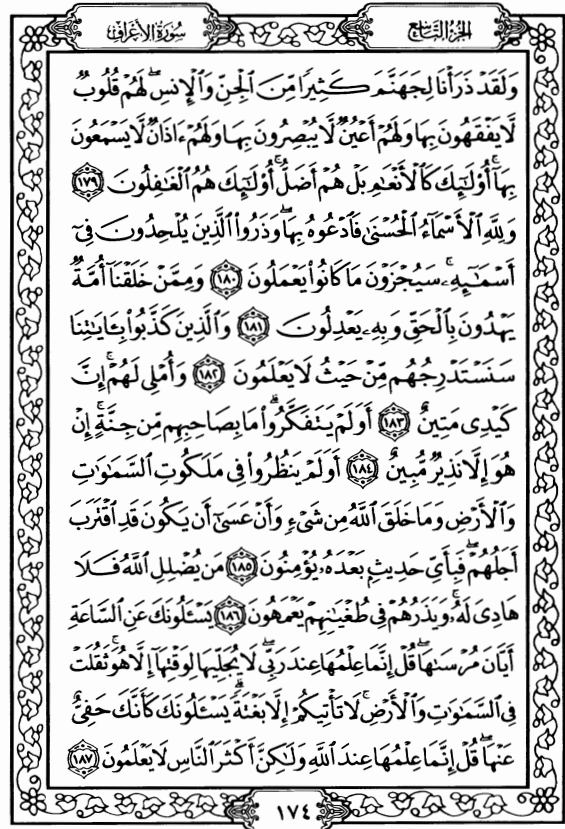 الجزء التاسع
سورة الأعراف
وَلَقَدْ ذَرَأْنَا لِجَهَنَّمَ كَثِيرًا مِّنَ الْجِنِّ وَالْإِنسِ ۖ لَهُمْ قُلُوبٌ
لَّا يَفْقَهُونَ بِهَا وَلَهُمْ أَعْيُنٌ لَّا يُبْصِرُونَ بِهَا وَلَهُمْ ءَاذَانٌ لَّا يَسْمَعُونَ
بِهَا ۚ أُو۟لَـٰٓئِكَ كَالْأَنْعَـٰمِ بَلْ هُمْ أَضَلُّ ۚ أُو۟لَـٰٓئِكَ هُمُ الْغَـٰفِلُونَ ١٧٩
وَلِلَّهِ الْأَسْمَآءُ الْحُسْنَىٰ فَادْعُوهُ بِهَا ۖ وَذَرُوا۟ الَّذِينَ يُلْحِدُونَ فِىٓ
أَسْمَـٰٓئِهِۦ ۚ سَيُجْزَوْنَ مَا كَانُوا۟ يَعْمَلُونَ ١٨٠ وَمِمَّنْ خَلَقْنَآ أُمَّةٌ
يَهْدُونَ بِالْحَقِّ وَبِهِۦ يَعْدِلُونَ ١٨١ وَالَّذِينَ كَذَّبُوا۟ بِـَٔايَـٰتِنَا
سَنَسْتَدْرِجُهُم مِّنْ حَيْثُ لَا يَعْلَمُونَ ١٨٢ وَأُمْلِى لَهُمْ ۚ إِنَّ
كَيْدِى مَتِينٌ ١٨٣ أَوَلَمْ يَتَفَكَّرُوا۟ ۗ مَا بِصَاحِبِهِم مِّن جِنَّةٍ ۚ إِنْ
هُوَ إِلَّا نَذِيرٌ مُّبِينٌ ١٨٤ أَوَلَمْ يَنظُرُوا۟ فِى مَلَكُوتِ السَّمَـٰوَٰتِ
وَالْأَرْضِ وَمَا خَلَقَ اللَّهُ مِن شَىْءٍ وَأَنْ عَسَىٰٓ أَن يَكُونَ قَدِ اقْتَرَبَ
أَجَلُهُمْ ۖ فَبِأَىِّ حَدِيثٍۭ بَعْدَهُۥ يُؤْمِنُونَ ١٨٥ مَن يُضْلِلِ اللَّهُ فَلَا
هَادِىَ لَهُۥ ۚ وَيَذَرُهُمْ فِى طُغْيَـٰنِهِمْ يَعْمَهُونَ ١٨٦ يَسْـَٔلُونَكَ عَنِ السَّاعَةِ
أَيَّانَ مُرْسَىٰهَا ۖ قُلْ إِنَّمَا عِلْمُهَا عِندَ رَبِّى ۖ لَا يُجَلِّيهَا لِوَقْتِهَآ إِلَّا هُوَ ۚ ثَقُلَتْ
فِى السَّمَـٰوَٰتِ وَالْأَرْضِ ۚ لَا تَأْتِيكُمْ إِلَّا بَغْتَةً ۗ يَسْـَٔلُونَكَ كَأَنَّكَ حَفِىٌّ
عَنْهَا ۖ قُلْ إِنَّمَا عِلْمُهَا عِندَ اللَّهِ وَلَـٰكِنَّ أَكْثَرَ النَّاسِ لَا يَعْلَمُونَ ١٨٧
١٧٤